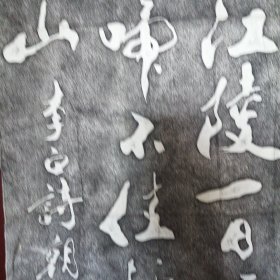 江陵一日
啼不住
山
李白詩